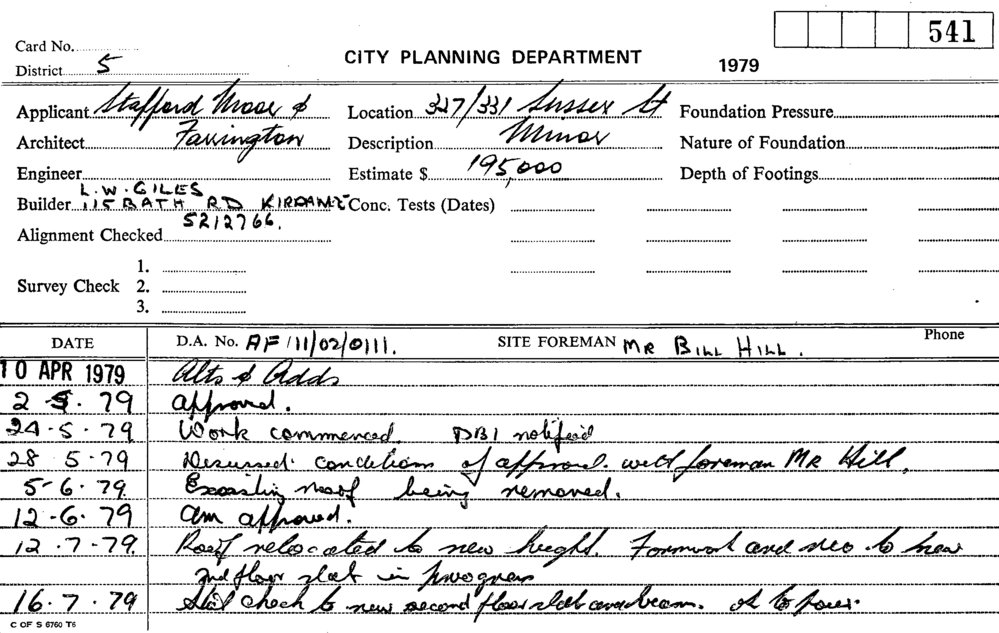 541
Card No.
CITY PLANNING DEPARTMENT
District 5
1979
Applicant Stafford Moor &
Location 327/331 Sussex St
Foundation Pressure
Architect Farrington
Description Minor
Nature of Foundation
Engineer
Estimate $ 195,000
Depth of Footings
L.W. GILES
Builder 115 BATH RD KIRRAWEE
Conc. Tests (Dates)
5212766.
Alignment Checked
1.
Survey Check 2.
3.
DATE
D.A. No. AF/11/02/0111.
SITE FOREMAN MR BILL HILL.
Phone
10 APR 1979 Alts & Adds
2 5. 79 Approved.
24-5-79 Work commenced. DBI notified
28 5-79 Discussed conditions of approval with foreman MR Hill.
5-6.79. Exsisting roof being removed.
12-6.79 Am approved.
12.7-79. Roof relocated to new height. Formwork and reo to new
2nd floor slab in progress
16.7.79 check to new second floor slab and beam. ok to pour.
C OF S 6760 T6